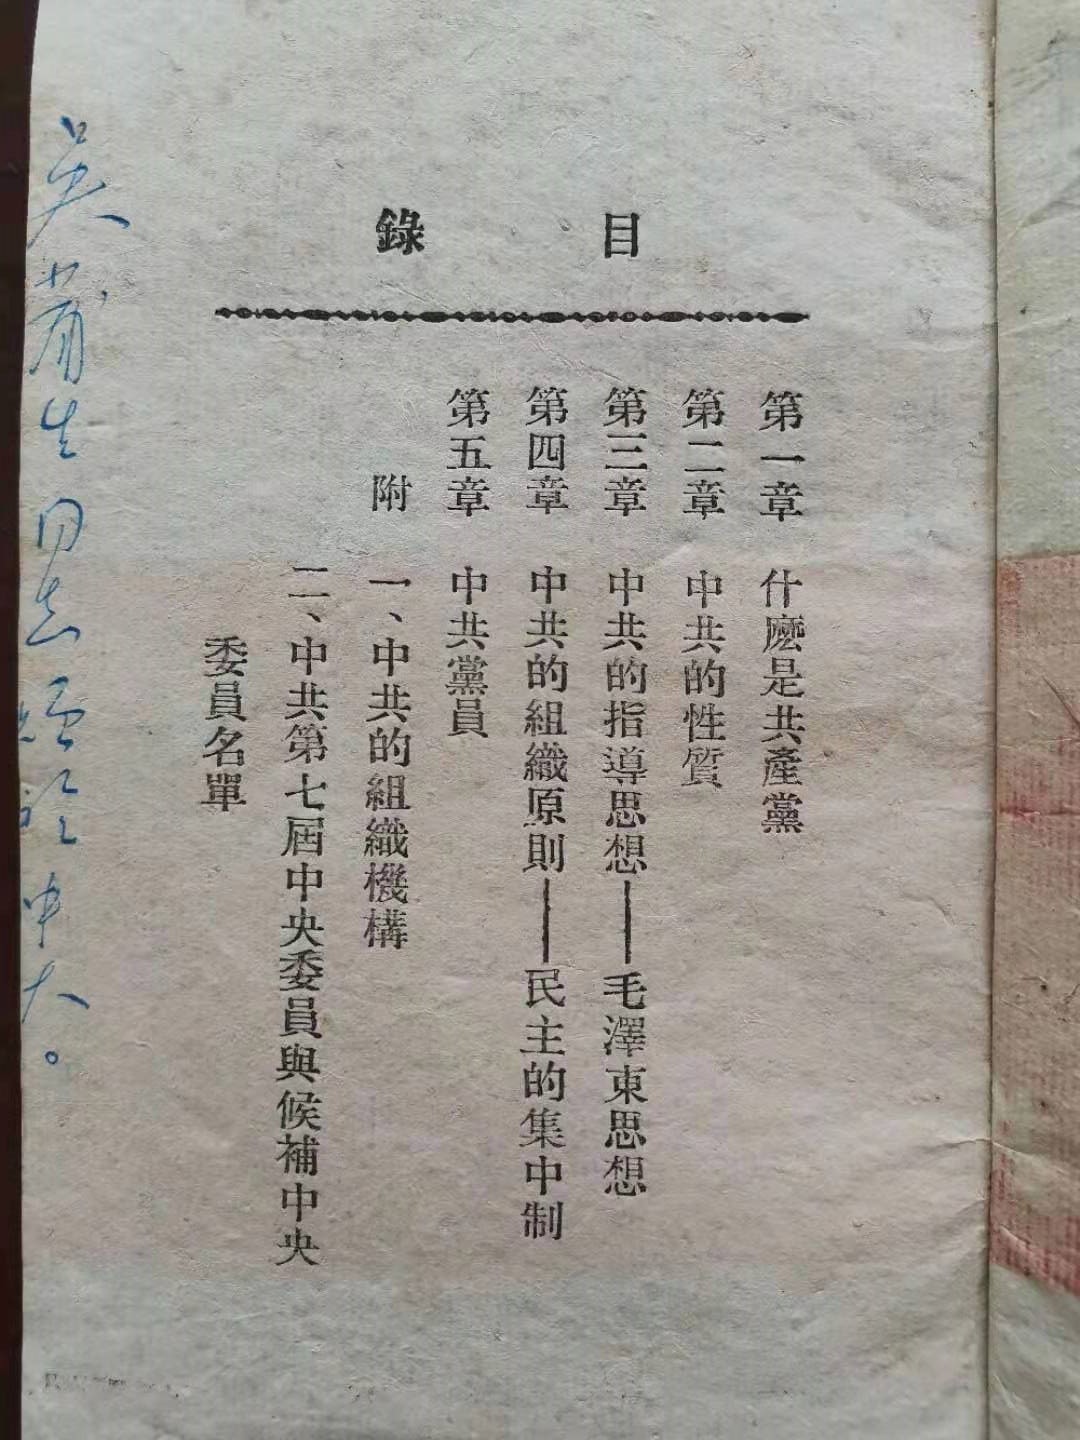 目錄
第一章 什麽是共產黨
第二章 中共的性質
第三章 中共的指導思想——毛澤東思想
第四章 中共的組織原則——民主的集中制
第五章 中共黨員
附 一、中共的組織機構
二、中共第七屆中央委員與候補中央
委員名單
吴莆生同志 於中大。